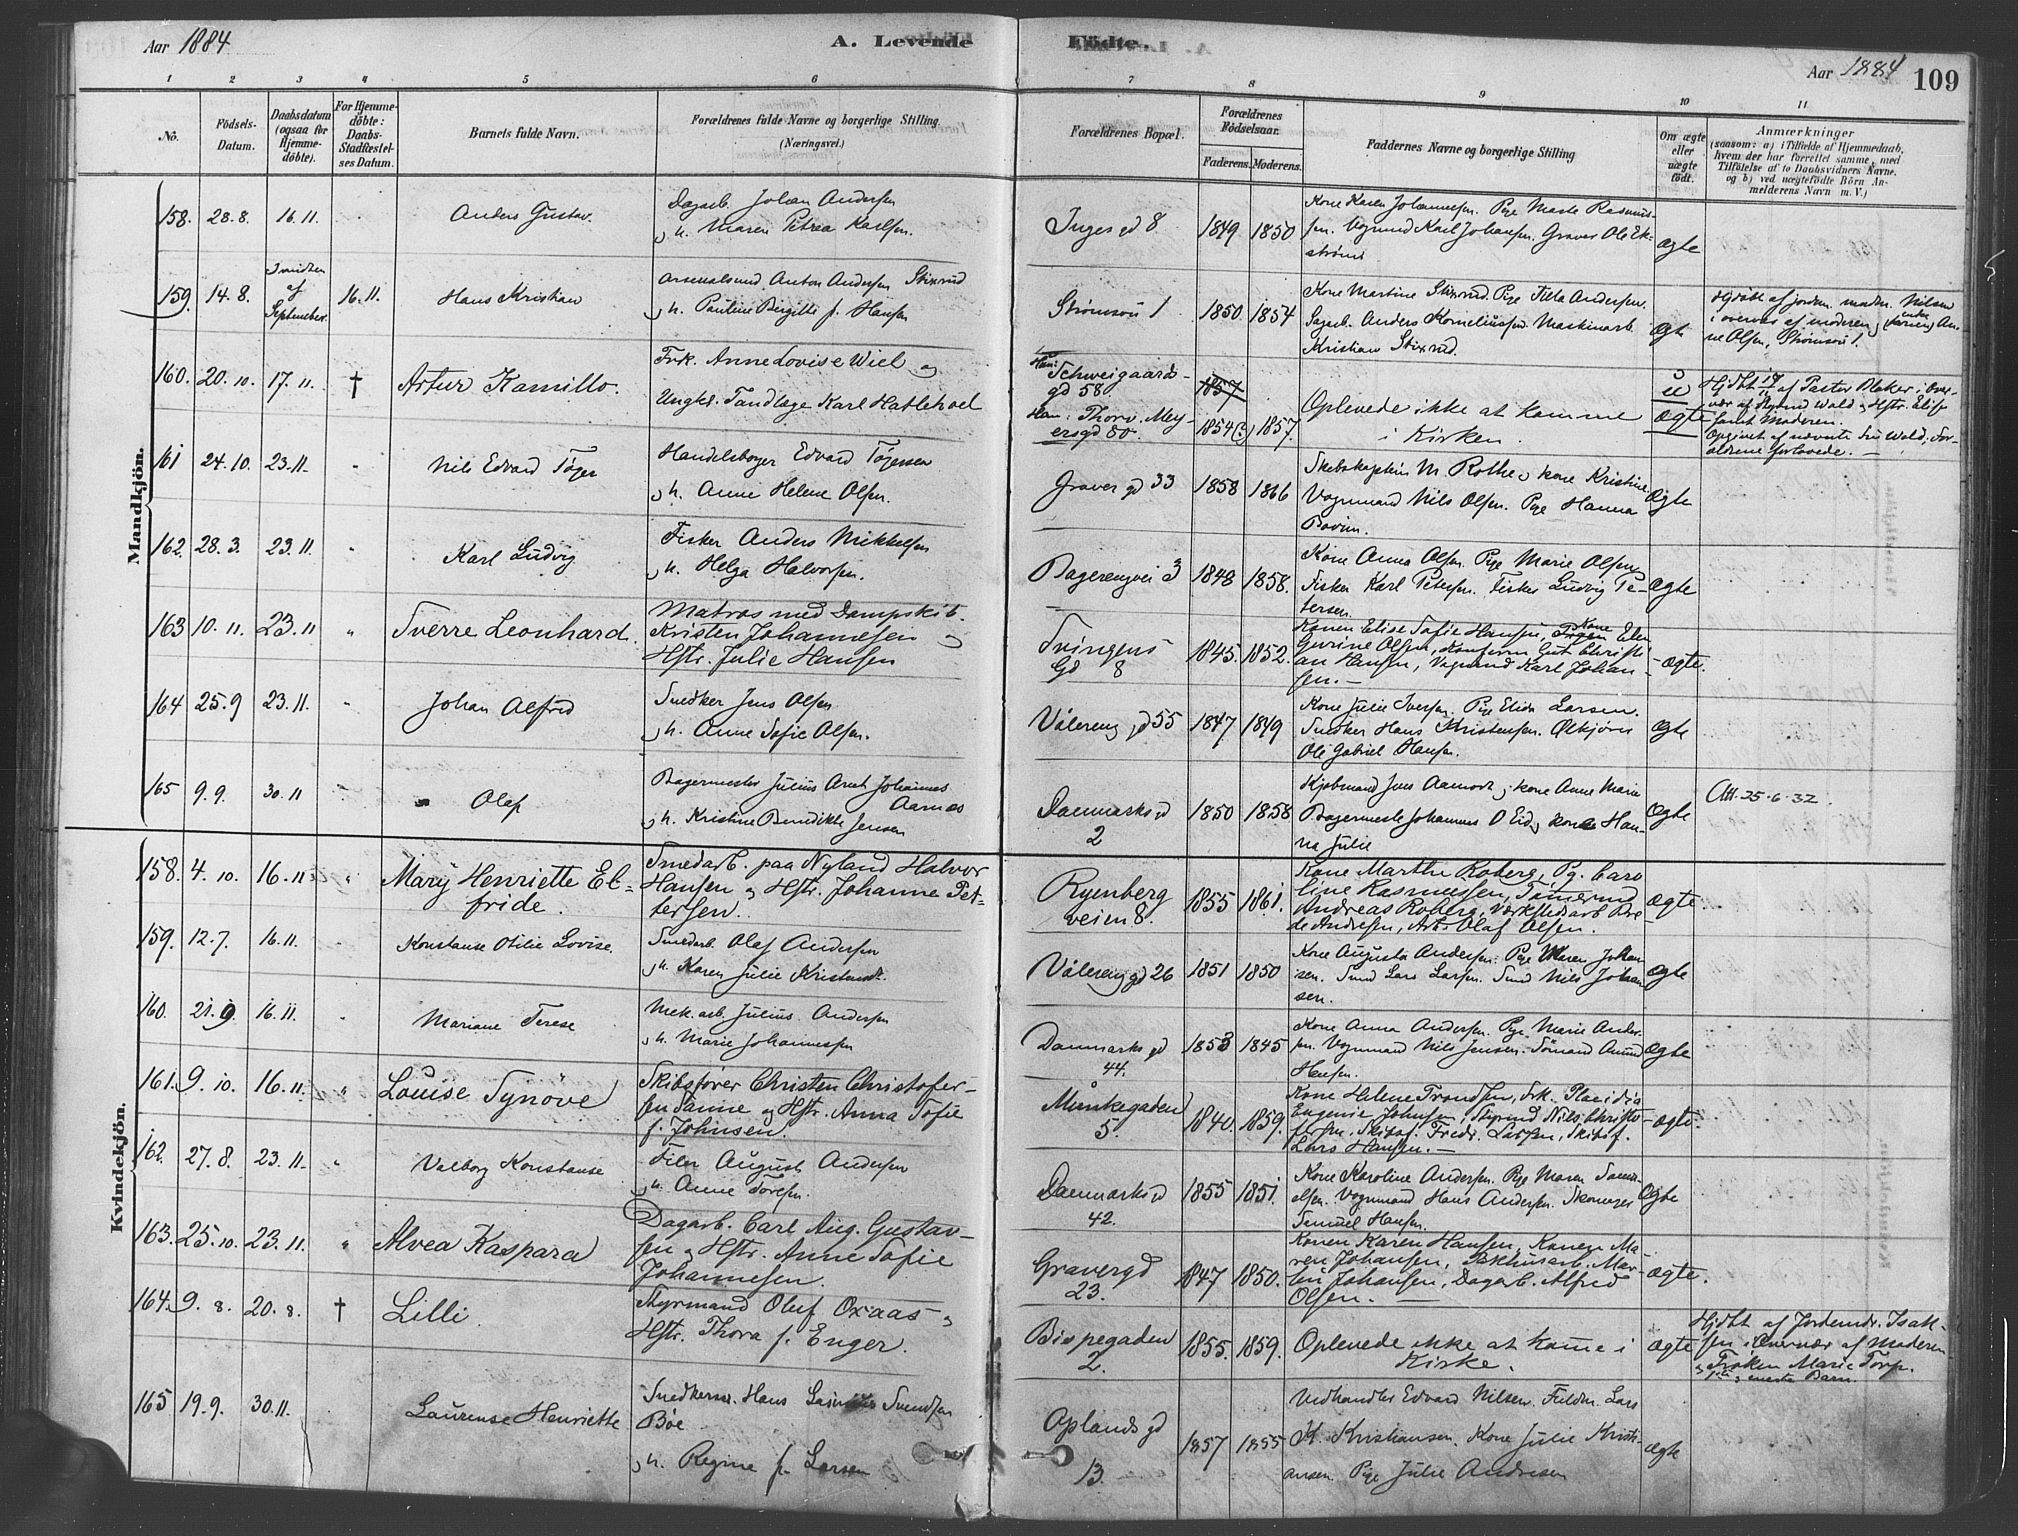 Aar 1884
A. Levende
Födte.
Aar 1884
109
1 2 3 4 5 6 7 8 9 10 11
No.
Födsels-
Datum.
Daabsdatum
(ogsaa for
Hjemme-
döbte).
For Hjemme-
döbte:
Daabs-
Stadfæstel-
ses Datum.
Barnets fulde Navn.
Forældrenes fulde Navne og borgerlige Stilling.
(Næringsvei.)
Forældrenes Bopæl.
Forældrenes
Födselsaar.
Faderens.
Moderens.
Faddernes Navne og borgerlige Stilling
Om ægte
eller
uægte
født.
Anmærkninger
(saasom: a) i Tilfælde af Hjemmedaab,
hvem der har forrettet samme, med
Tilföielse af to Daabsvidners Navne,
og b) ved uægtefödte Börn An-
melderens Navn m. V.)
Mandkjön.
158. 28.8. 16.11. Anders Gustav.
Dagarb. Johan Andersen
h. Maren Petrea Karlsen.
Inges gd 8 1849 1850
Kone Karen Johannesen. Pige Marte Rasmus-
sen. Vognmand Karl Johansen. Graver Ole Ek-
strøm
ægte
159. 14.8.
I midten
af
September.
16.11. Hans Kristian
Anton Andersen Stixrud
h. Pauline Birgitte f. Hansen
Strømsvei 1 1850 1854
Kone Martine Stixrud. Pige Andersen.
Dagarb. Anders Korneliussen. Maskinarb.
Kristian Stixrud.
ægte
af jordem. madm. Nilsen
i overvær af moderen
ne Olsen, Strømsvei 1.
160. 20.10. 17.11. † Artur Kamillo.
Frk. Anne Lovise Wiel og
Ungk. Tandlæge Karl Hatlehoel
Hun: Schweigaards-
gd 58.
Ham: Thorv. Mey-
ersgd 80.
1857
1854(?) 1857.
Oplevede ikke at komme
i Kirken.
u
ægte
Hjdbt af Pastor Blaker i Over-
vær af Wald og Hstr. Elise
samt Moderen.
Opgivet af Wald. For-
ældrene forlovede.
161 24.10. 23.11. Nils Edvard Tøger
Handelsborger Edvard Tøgersen
h. Anne Helene Olsen.
Graver gd 33 1858 1866
Skibskaptein M. Rothe, kone Kristine.
Vognmand Nils Olsen. Pige Hanna
ægte
162. 28.3. 23.11. Karl Ludvig
Fisker Anders Mikkelsen
h. Helga Halvorsen.
Bagerengvei 3 1848 1858.
Kone Anna Olsen. Pige Marie Olsen,
Fisker Karl Petersen. Fisker Ludvig Pe-
tersen.
ægte
163 10.11. 23.11 Sverre Leonhard.
Matros med Dampskib.
Kristen Johannesen og
Hstr. Julie Hansen
Tvingens
Gd 8
1845. 1852.
Konen Elise Sofie Hansen, Kone Elen
Gurine Olsen, Konferm. Gut Christi-
an Hansen, Vognmand Karl Johan-
sen.
ægte.
164 25.9 23.11. Johan Alfred
Snedker Jens Olsen
h. Anne Sofie Olsen.
Vålereng gd 55 1847 1849
Kone Julie Iversen. Pige Elida Larsen.
Snedker Hans Kristensen. Ølkjører
Ole Gabriel Hansen.
ægte
165 9.9. 30.11 Olaf
Bagermester Julius Arnt Johannes
Aarnæs
h. Kristine Benedikte Jensen
Danmarks gd
2
1850 1858
Kjøbmand Jens Aamodt, kone Anne Marie
Bagermester Johannes O Eid, kone Han-
na Julie
ægte
Att. 25.6.32.
Kvindekjön.
158. 4.10. 16.11 Mary Henriette El-
fride.
Smedarb. paa Nyland Halvor
Hansen og Hstr. Johanne Pet-
tersen.
Ryenberg
veien 8.
1855 1861.
Kone Marthe Roberg, Pg. Caro
line Rasmussen, Tømermd
Andreas Roberg, Værkstedsarb
Andresen, Arb. Olaf Olsen.
ægte.
159. 12.7. 16.11. Konstanse Otilie Lovise.
Smedarb. Olaf Andersen
h. Karen Julie
Vålereng gd 26 1851 1850
Kone Augusta Andersen. Pige Maren Johan
sen. Smed Lars Larsen. Smed Nils Johan
sen.
ægte
160. 21.9. 16.11. Mariane Terese
Mek. arb. Julius Andersen
h. Marie Johannesen
Danmarks gd
44.
1853 1845
Kone Anna Andersen. Pige Marie Ander-
sen. Vognmand Nils Jensen. Sømand Amund
Hansen.
ægte
161. 9.10. 16.11. Louise Synøve
Skibsfører Christen Christofer-
sen Sanne og Hstr. Anna Sofie
f. Johnsen.
Munkegaden
5.
1840. 1859.
Kone Helene Trondsen, Frk. Placidia
Eugenie Johnsen, Styrmd Nils Christo-
fersen. Skibsf. Fredr. Larsen, Skibsf.
Lars Hansen.
ægte.
162. 27.8. 23.11. Valborg Konstanse
Filer August Andersen
h. Anne Toresen.
Danmarks gd
42.
1855 1851.
Kone Karoline Andersen. Pige Maren Samu
elsen. Vognmand Hans Andersen. Skomager
Samuel Hansen.
ægte
163. 25.10. 23.11. Alvea Kaspara
Dagarb. Carl Aug. Gustav-
sen og Hstr. Anne Sofie
Johannesen.
Gravergd
23.
1847 1850.
Konen Karen Hansen, Konen Ma-
ren Johansen, Pakhusarb. Mar-
tin Johansen, Dagarb. Alfred
Olsen.
ægte.
164. 9.8. 20.8. † Lilli.
Styrmand Oluf Oxaas
Hstr. Thora f. Enger.
Bispegaden
2.
1855. 1859.
Oplevede ikke at kome i
Kirke.
ægte
Hjdbt af Jordemdr. Isak-
sen i Overvær af Moderen
Frøken Marie Torp.
eneste Barn.
165 19.9. 30.11. Laurense Henriette
Hans Svendsen
Bøe
h. Regine f. Larsen
Oplands gd
13.
1857 1855
Vedhandler Edvard Nilsen. Lars
K. Kristiansen. Kone Julie Kristi-
ansen. Pige Julie Andresen
ægte